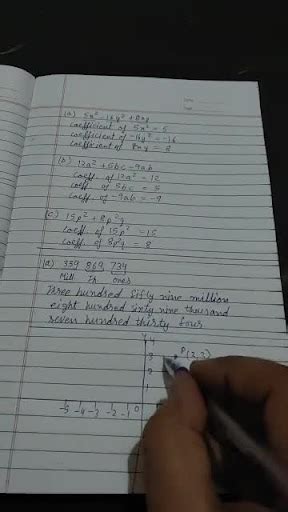 (a) 5x² - 16y² + 8xy
coefficient of 5x² = 5
coefficient of -16y² = -16
coefficient of 8xy = 8
(b) 12a² + 5bc - 9ab
coeff. of 12a² = 12
coeff. of 5bc = 5
coeff. of -9ab = -9
(c) 15p² + 8p²y
coeff. of 15p² = 15
coeff. of 8p²y = 8
(a) 359 869 734
Mill Th ones
Three hundred fifty nine million
eight hundred sixty nine thousand
seven hundred thirty four
Y
4
3 P(2,3)
2
1
-5 -4 -3 -2 -1 0